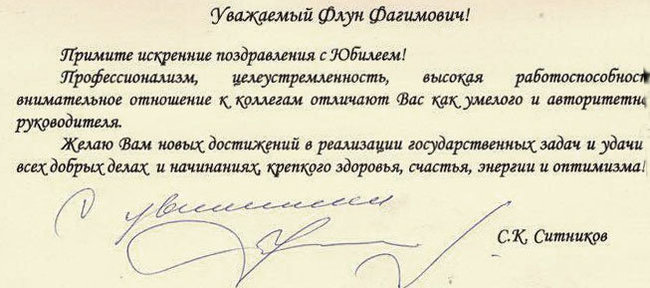 Уважаемый Флун Фагимович!
Примите искренние поздравления с Юбилеем!
Профессионализм, целеустремленность, высокая работоспособност
внимательное отношение к коллегам отличают Вас как умелого и авторитетн
руководителя.
Желаю Вам новых достижений в реализации государственных задач и удачи
всех добрых делах и начинаниях, крепкого здоровья, счастья, энергии и оптимизма!
С уважением
С.К. Ситников